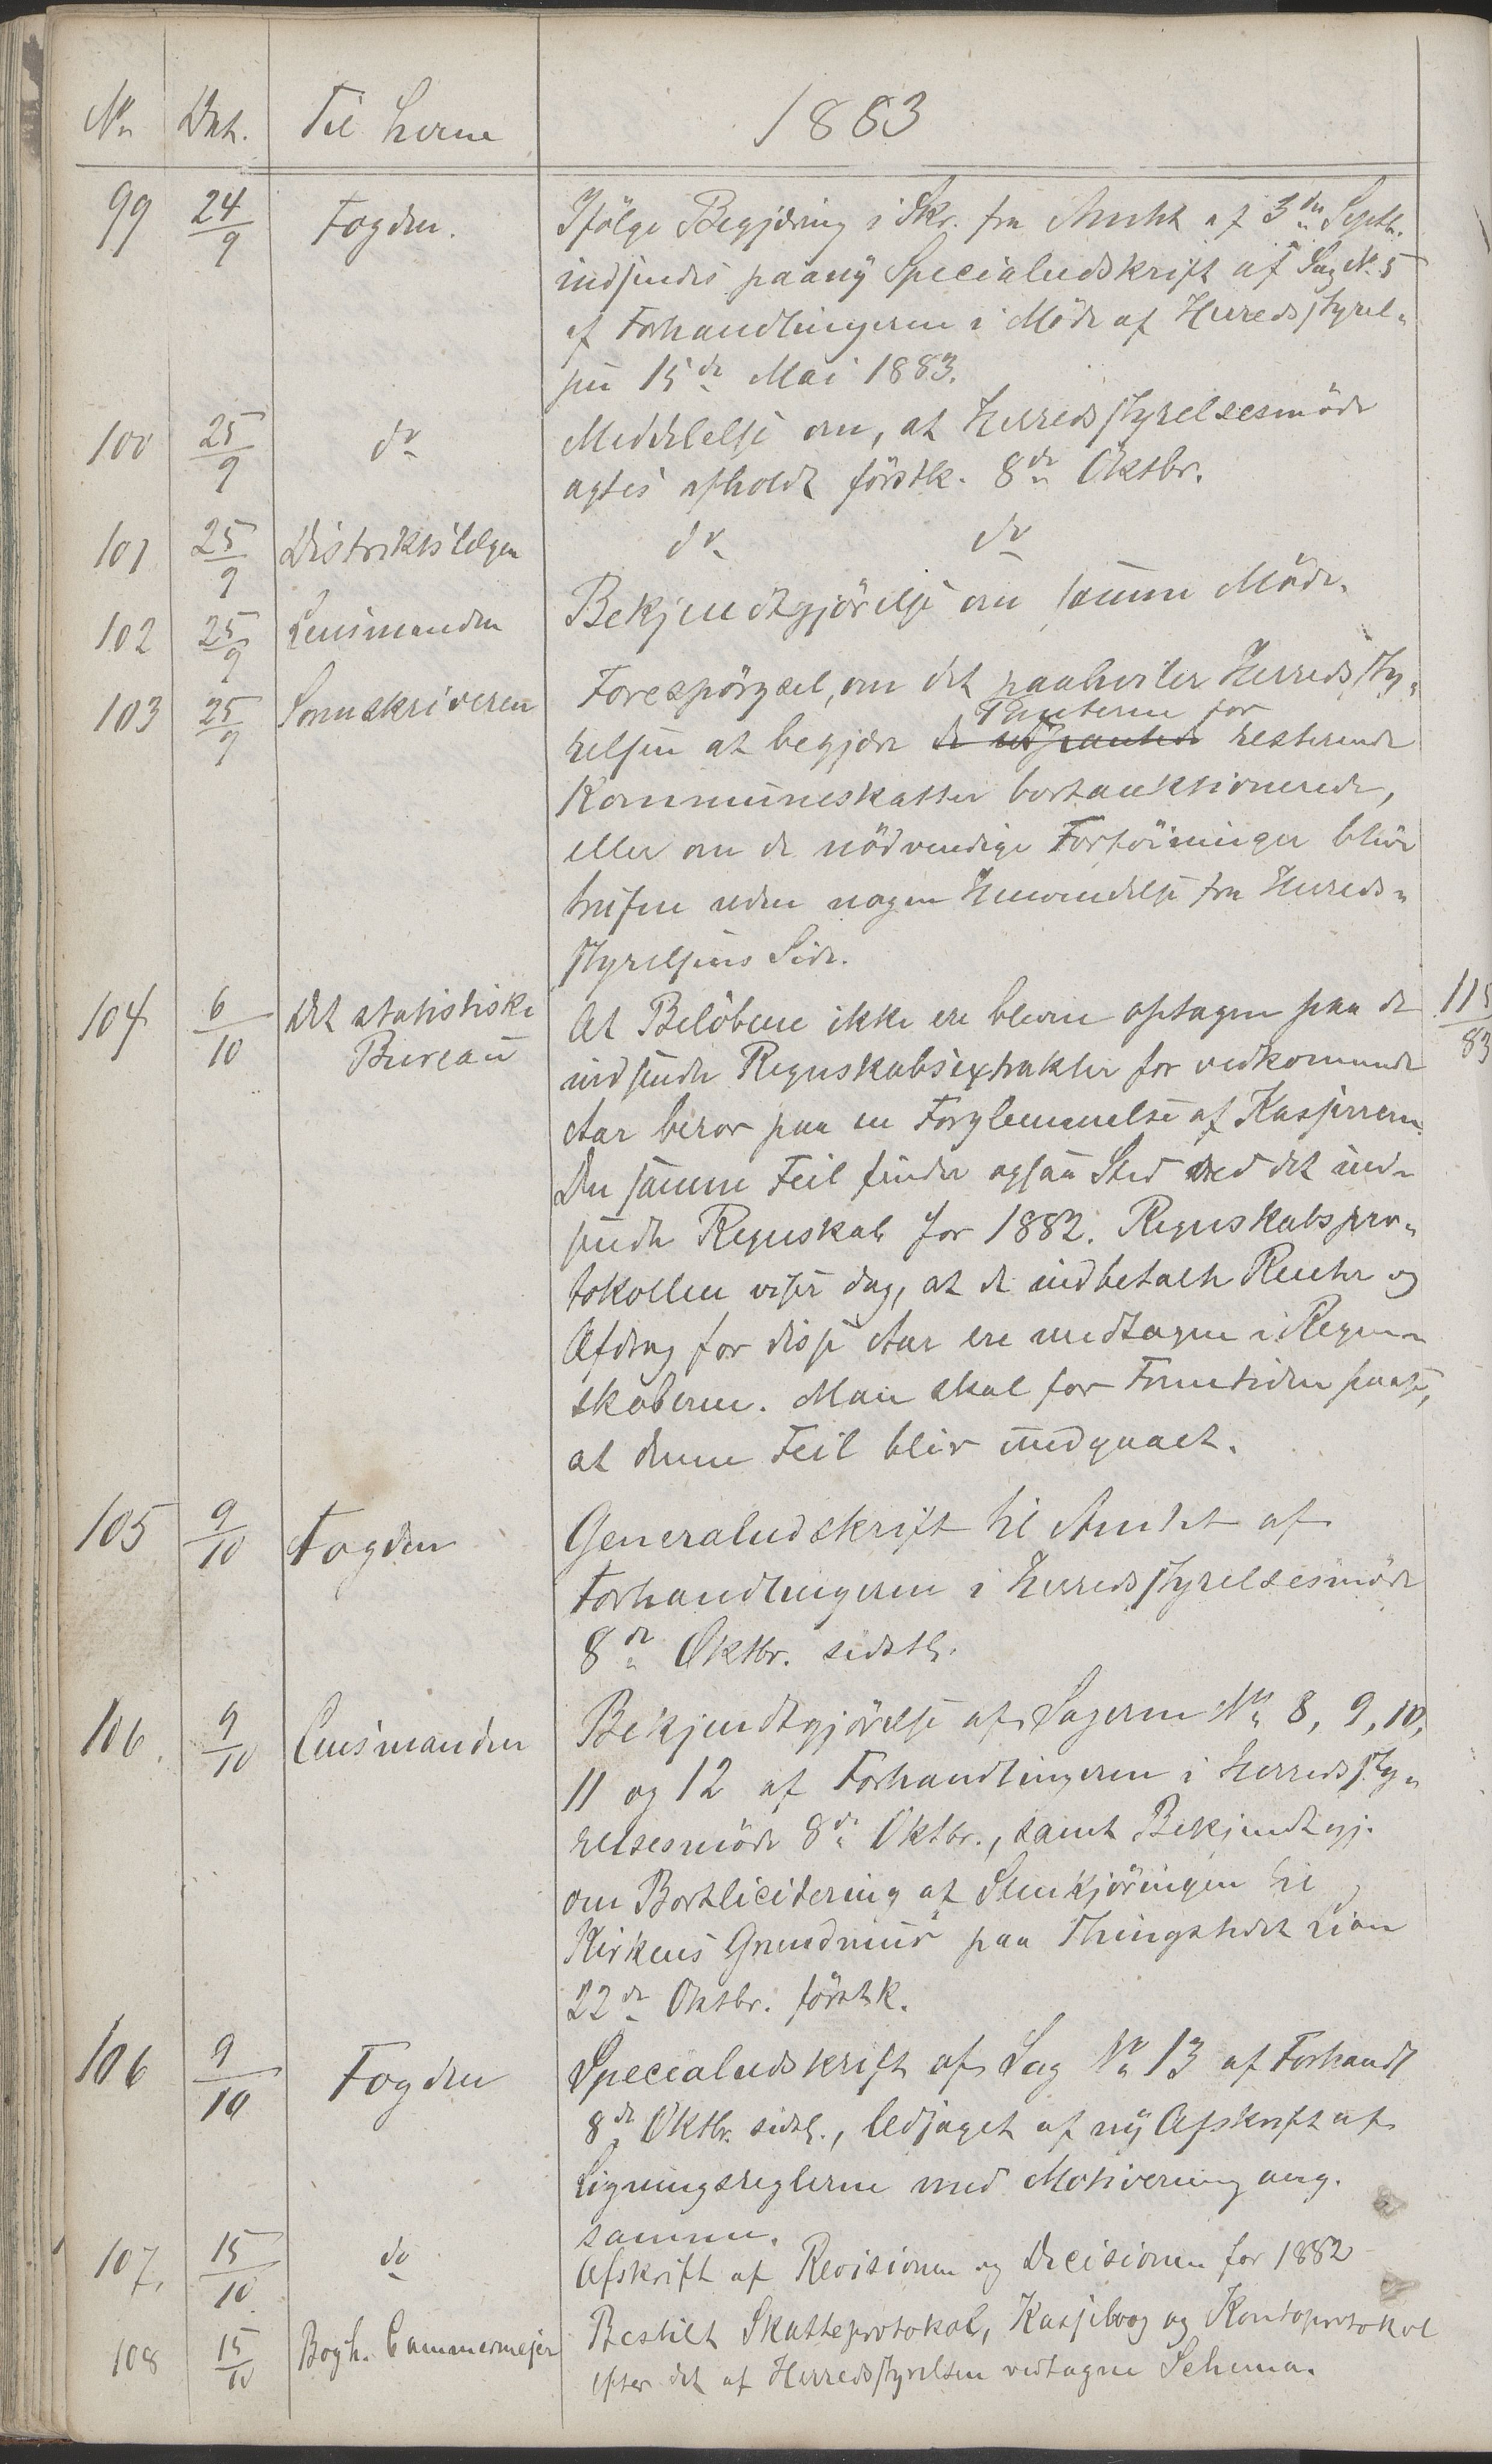 No Dat. Til Herrer 1883
99 24/9 Fogden. Ifölge Begjæring i Skr. fra Amtet af 3die Septb.
indsendes paany Specialudskrift af Sag No 5
af Forhandlingerne i Möde af Herredsstyrel-
sen 15de Mai 1883.
100 25/9 do Meddelelse om, at Herredsstyrelsesmöde
agtes afholdt förstk. 8de Oktbr.
101 25/9 Distriktslægen do do
102 25/9 Lensmanden Bekjendtgjörelse om samme Möde.
103 25/9 Sorenskriveren Forespörgsel, om det paahviler Herredssty-
Panterne for
relsen at begjære de udpantede resterende
Kommuneskatter bortauktionerede,
eller om de nödvendige Forföininger blive
trufne uden nogen Henvendelse fra Herreds-
styrelsens Side.
104 6/10 Det statistiske At Belöbene ikke ere blevne optagne paa de 115/83
Bureau indsendte Regnskabsextrakter for vedkommende
Aar beror paa en Forglemmelse af Kassereren.
Den samme Feil finder ogsaa Sted med det ind-
sendte Regnskab for 1882. Regnskabspro-
tokollen viser dog, at de indbetalte Renter og
Afdrag for disse Aar ere medtagne i Regn-
skaberne. Man skal for Fremtiden paase,
at denne Feil blir undgaaet.
105 9/10 Fogden Generaludskrift til Amtet af
Forhandlingerne i Herredsstyrelsesmöde
8de Oktbr. sidstl.
106. 9/10 Lensmanden Bekjendtgjörelse af Sagerne No 8, 9, 10,
11 og 12 af Forhandlingerne i Herredssty-
relsesmöde 8de Oktbr., samt Bekjendtgj.
om Bortlicitering af Stenkjöringen til
Kirkens Grundmur paa Thingstedet Lian
22de Oktbr. förstk.
106 9/10 Fogden Specialudskrift af Sag No 13 af Forhandl
8de Oktbr. sidstl., ledsaget af ny Afskrift af
Ligningsreglerne med Motivering ang.
samme.
107. 15/10 do Afskrift af Revisionen og Decisionen for 1882
108 15/10 Bogh. Cammermejer Bestilt Skatteprotokol, Kassebog og Kontoprotokol
efter det af Herredsstyrelsen vedtagne Schema.